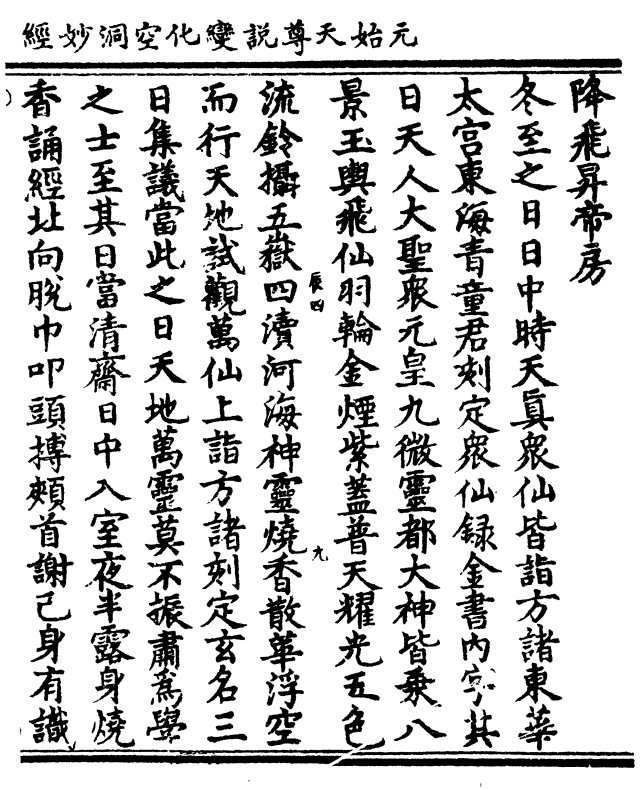 元始天尊説變化空洞妙經
降飛昇帝房
冬至之日日中時天眞衆仙皆詣方諸東華
太宮東海青童君刻定衆仙録金書内字其
日天人大聖衆元皇九微靈都大神皆乗八
景玉輿飛仙羽輪金煙紫蓋普天耀光五色
辰四
九
流鈴攝五嶽四瀆河海神靈燒香散華浮空
而行天地試觀萬仙上詣方諸刻定玄名三
日集議當此之日天地萬靈莫不振肅爲學
之士至其日當清齋日中入室夜半露身燒
香誦經北向脫巾叩頭搏頰首謝己身有識